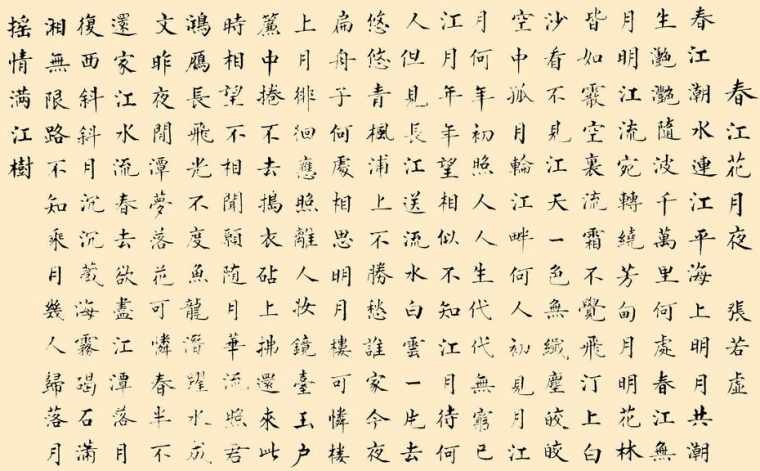 春江花月夜 張若虛
春江潮水連江平海上明月共潮
生灩灩隨波千萬里何處春江無
月明江流宛轉繞芳甸月明花林
皆如霰空裏流霜不覺飛汀上白
沙看不見江天一色無纖塵皎皎
空中孤月輪江畔何人初見月江
月何年初照人人生代代無窮已
江月年年望相似不知江月待何
人但見長江送流水白雲一片去
悠悠青楓浦上不勝愁誰家今夜
扁舟子何處相思明月樓可憐樓
上月徘徊應照離人妝鏡臺玉户
簾中捲不去搗衣砧上拂還來此
時相望不相聞願随月華流照君
鴻鴈長飛光不度魚龍潛躍水成
文昨夜閒潭夢落花可憐春半不
還家江水流春去欲盡江潭落月
復西斜斜月沉沉藏海霧碣石瀟
湘無限路不知乘月幾人歸落月
摇情满江樹